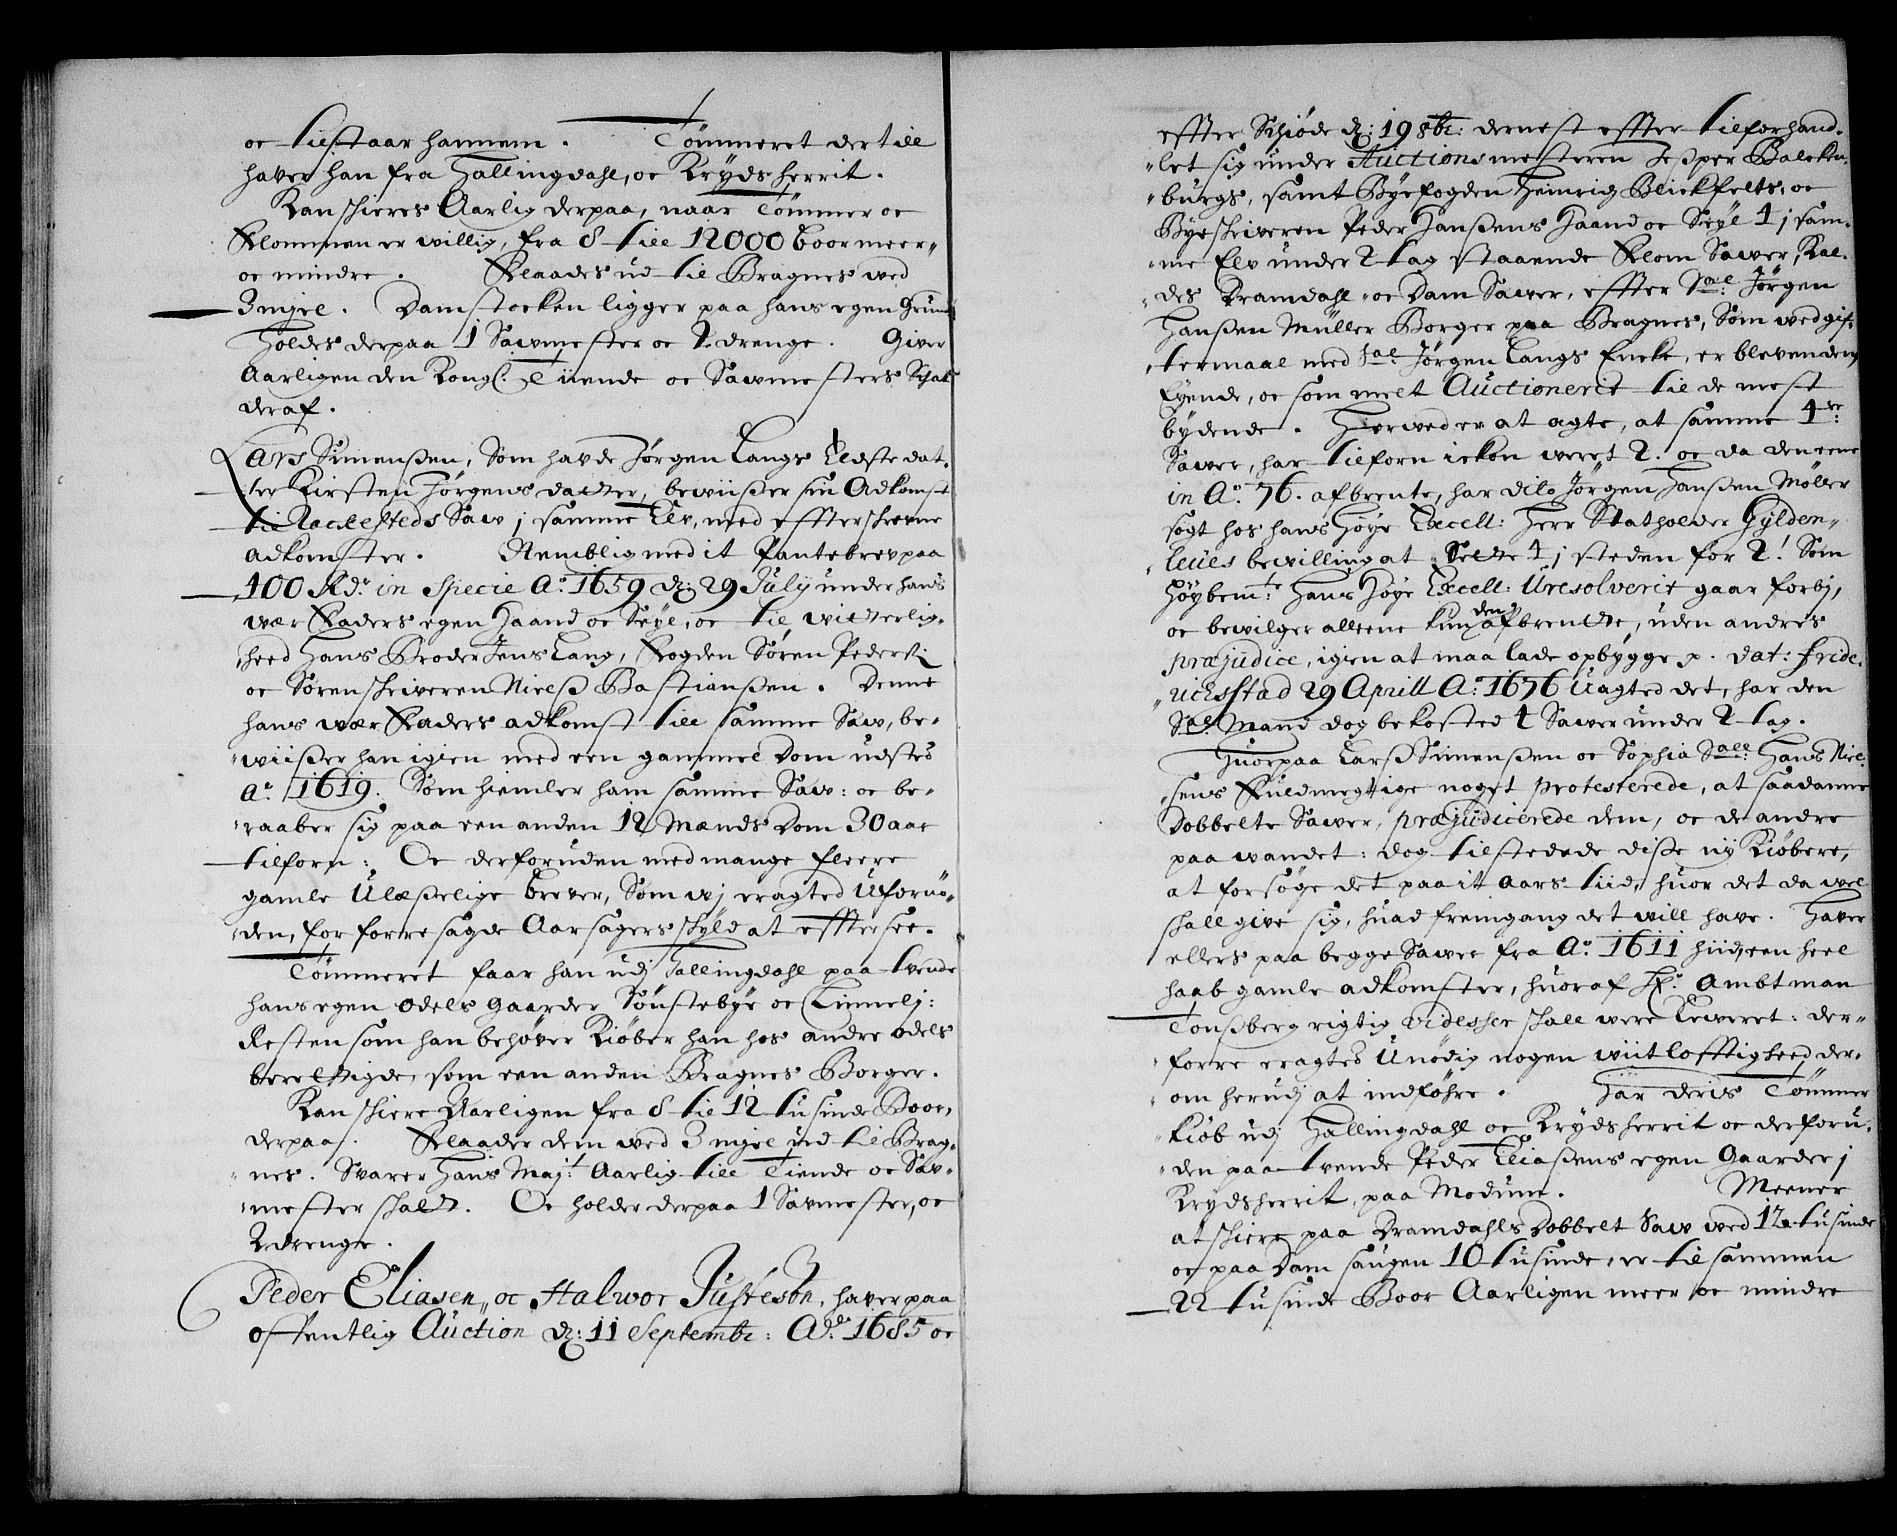 oc tilstaar hannem. Tömmeret der till
haver han fra Hallingdahl, oc Krydsherrit.
Kan schieres Aarlig derpaa, naar Tömmer oc
Flommen er willig, fra 8 till 12000 boor meer
oc mindre. Flaades ud til Bragnes ved
3 mjel. Damstocken ligger paa hans egen Grund
Holdes derpaa 1 Sawmester oc 2 drenge. Giver
Aarligen den Kongl: Tiiende oc Sawmesters Schat
deraf.
Lars Simensen, Som havde Jørgen Langs Eldste dat-
ter Kirsten Jørgens datter, bewiiser sin Adkomst
til Saw j samme Elv, med effterschrevne
Adkomster. Nemblig med it Pantebrev paa
100 Rdr. in Specie Ao. 1659 d: 29 July under hans
vær Faders egen Haand oc Seyl, oc til witterlig-
heed Hans Broder Jens Lang, Fogden Søren Peders:
oc Sørenschriveren Niels Bastiansen. Denne
hans vær Faders adkomst till samme Saw, be-
wiiser han igien med een gammel Dom udsted
ao. 1619. Som hiemler ham samme Saw: oc be-
raaber sig paa een anden 12 Mænds Dom 30 aar
tilforn: Oc derforuden med mange fleere
gamle Ulæselige brever, Som wj eragted Ufornö-
den, for forresagde Aarsagers skyld at effterse.
Tömmeret faar han udj Hallingdahl paa tvende
hans egen odels gaarder Sönstebye oc Linnelj:
Resten som han behøver Kiøber han hos andre odels
berettigede, som een anden Bragnes Borger.
Kan schiere Aarligen fra 8 til 12 tusinde Boor,
derpaa. Flaader dem ved 3 mjel ud til Brag-
nes. Svarer Hans Majt: Aarlig till Tiende oc Sav-
mester schatt. Oc holder derpaa 1 Savmester, oc
2 drenge.
Peder Eliasen, oc Halwor Justesøn, haver paa
offentlig Auction d: 11 Septembr: Ao. 1685 oc
effter Schiöde d: 19 8br: dernest effter tilforhand-
let sig under Auctionsmesteren Jesper Balcken-
burgs, samt Byefogden Heinrich Blickfelts, oc
Byeschriveren Peder Hansens Haand oc Seyl 4 j sam-
me Elv under 2 tag staaende Flom Sawer, Kal-
des Dramdahl oc Dam Sawer, effter Sal: Jørgen
Hansen Müller Borger paa Bragnes, Som ved gif-
termaal med Sal: Jørgen Langs Encke, er bleven dem
Eyende, oc som melt Auctionerit til de mest
bydende. Herved er at agte, at samme 4re:
Sawer, har tilforn ickon veret 2. oc da den eene
in Ao. 76. afbrente, har dito Jörgen Hansen Møller
søgt hos hans Høye Excell: Herr Statholder Gylden-
leues bewilling at Sette 4 j steden for 2! Som
Höybemte: Hans Høye Excell: Uresolverit gaar forbj,
oc bewilger alleene kun den afbrendte, uden andres
præjudice, igien at maa lade opbygge p. dat: Fride-
richsstad 29 Aprill Ao. 1676 Uagted det, har den
Sal: Mand dog bekosted 4 Sawer under 2 tag.
Huorpaa Lars Simensen oc Sophia Sall: Hans Niel-
sens Fuldmegtige noget protesterede, at saadanne
Dobbelte Sawer, præjudicerede dem, oc de andre
paa wandet: dog tilstedede disse ny Kiøbere,
at forsöge det paa it Aars tiid, huor det da wel
skall give sig, huad fremgang det will have. Haver
ellers paa begge Sawer fra Ao. 1611 hiid, een heel
haab gamle adkomster, huoraf Hr. Ambtman
Tonsberg rigtig Videsser schall vere Leveret: der-
forre eragtes Unødig nogen wiitløfftigheed der-
om herudj at indføhre. Har deris Tømmer
kiöb udj Hallingdahl oc Krydsherrit oc derforu-
den paa tvende Peder Eliasens egen Gaarder j
Krydsherrit, paa Modum. Meener
at schiere paa Dramdahls Dobbelt Saw ved 12 tusinde
oc paa Dam saugen 10 tusinde, er tilsammen
22 tusinde Boor Aarligen meer oc mindre